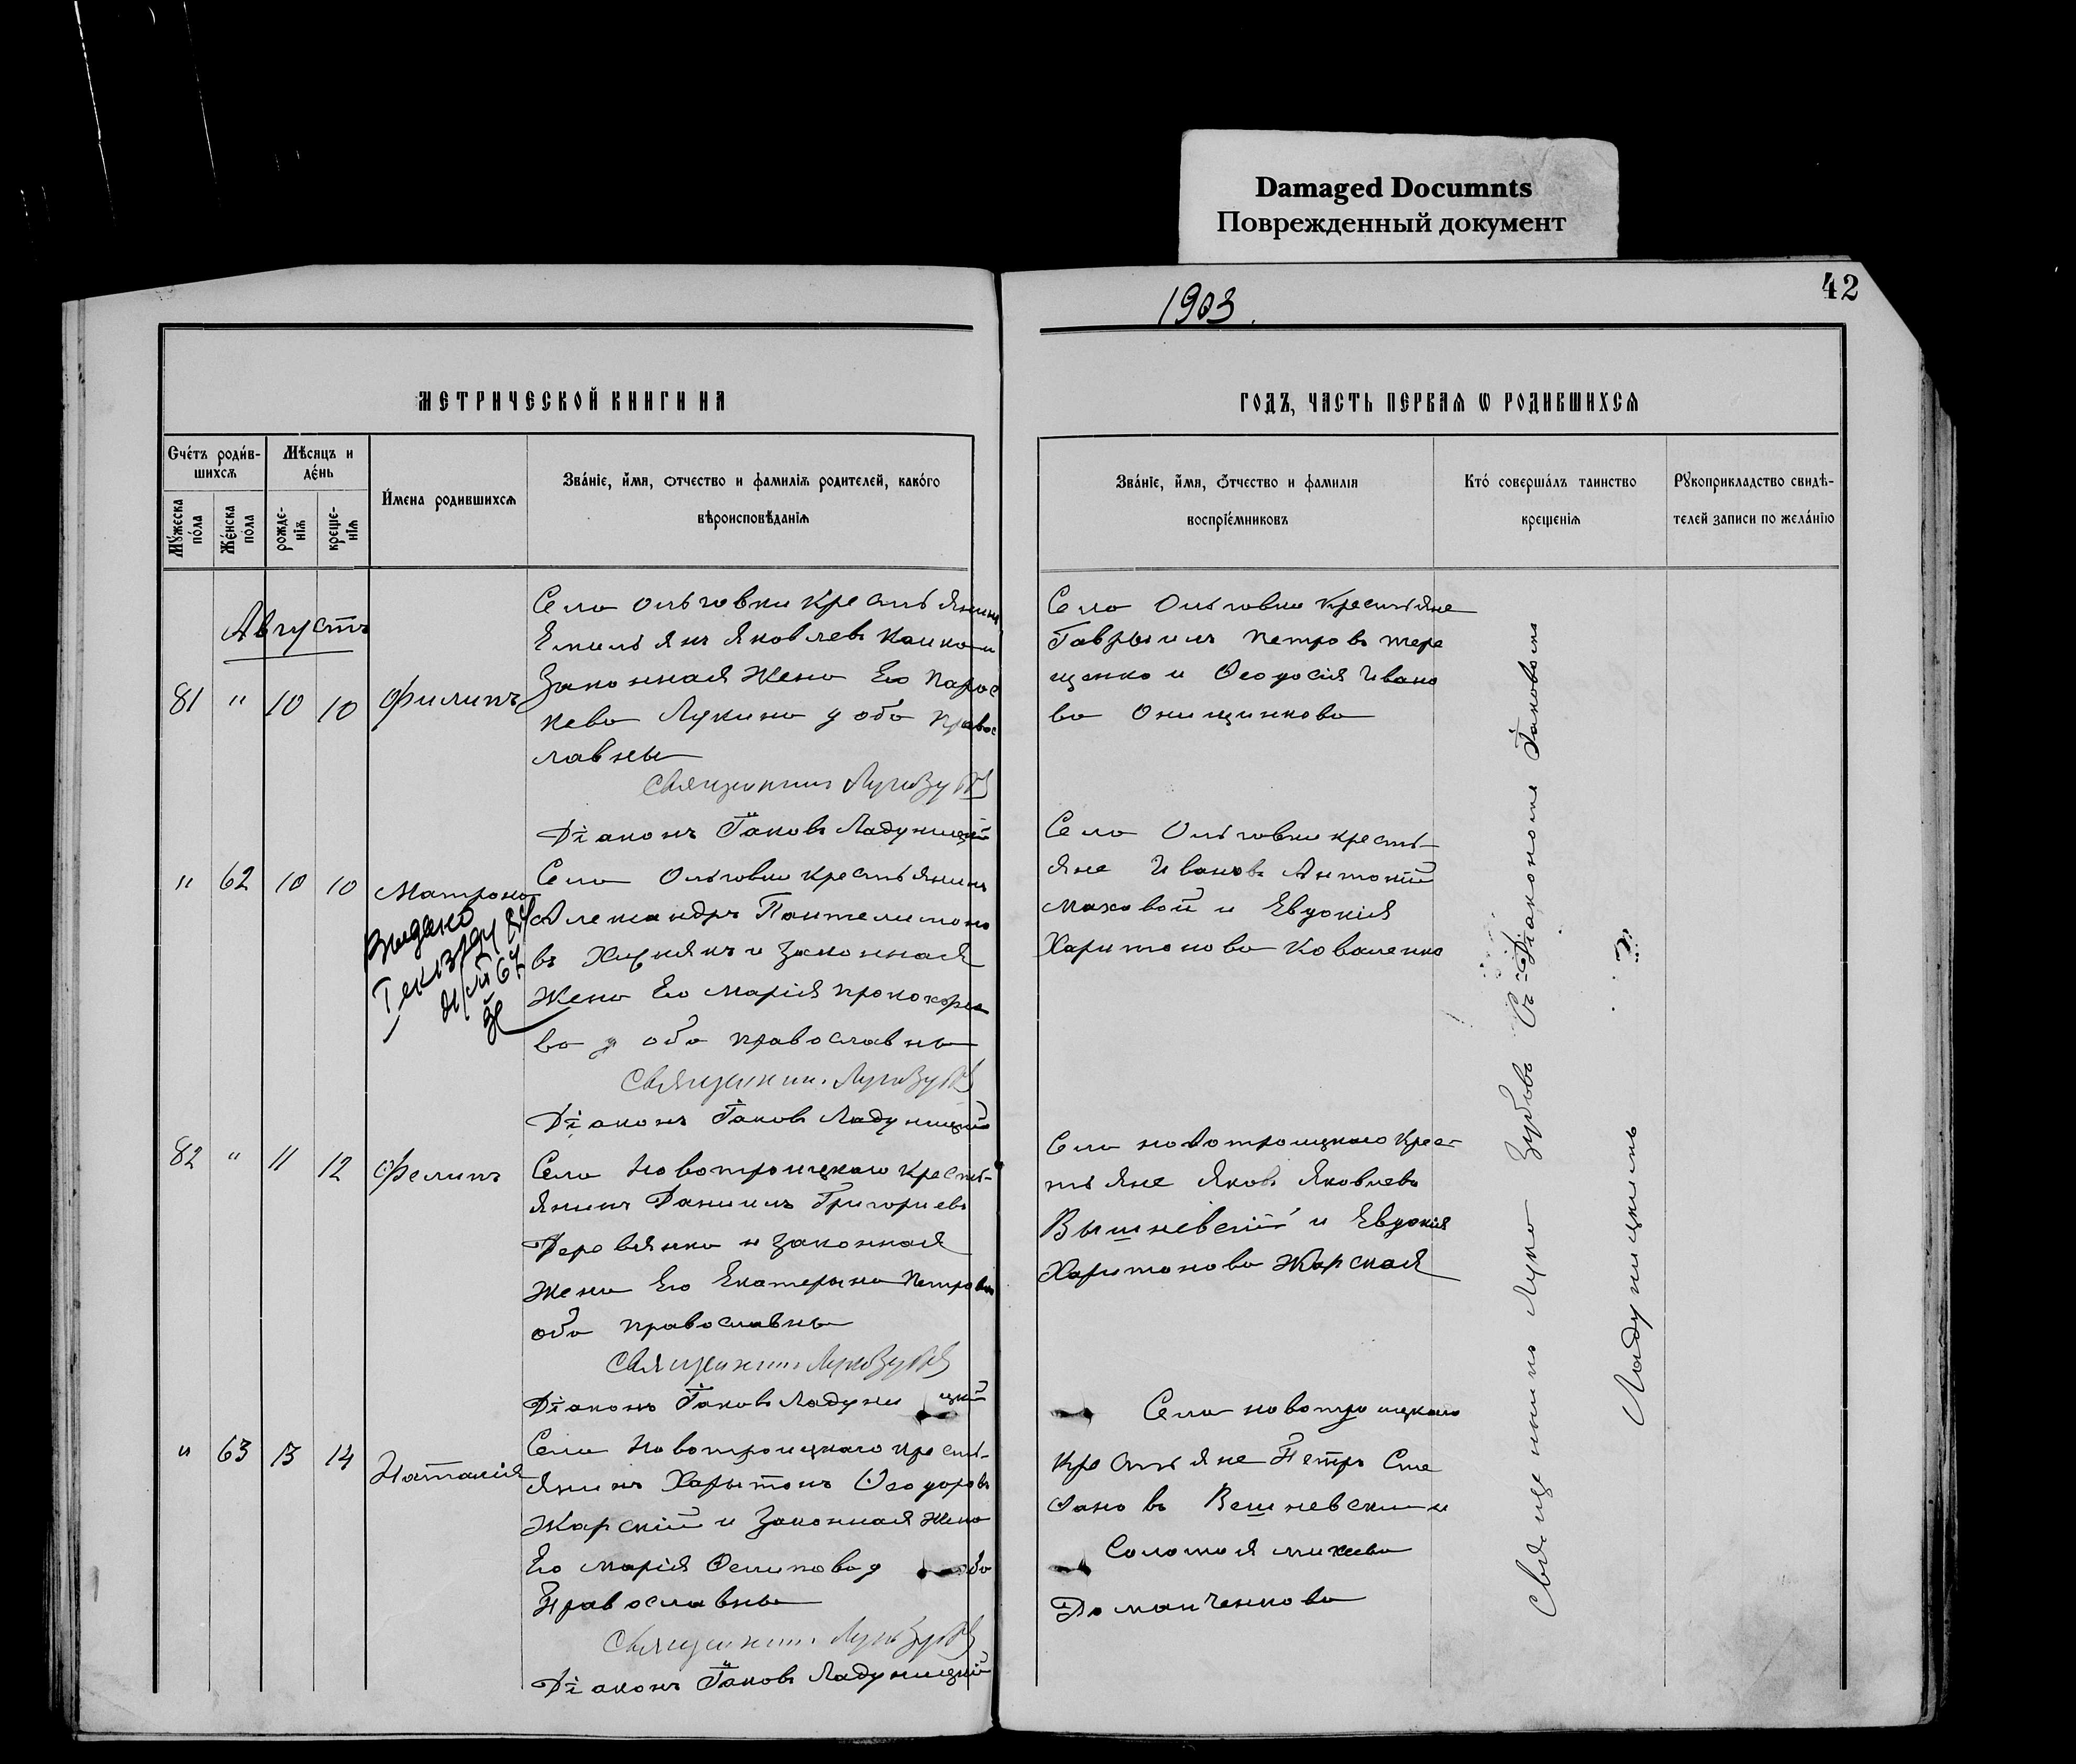 Damaged Documnts
Поврежденный документ
42
1903.
МЕТРИЧЕСКОЙ КНИГИ НА
ГОДЪ, ЧАСТЬ ПЕРВАЯ Ѡ РОДИВШИХСЯ
Счётъ роди́в-
шихсѧ
Мѣсяцъ и
де́нь
Му́жеска
по́ла
Же́нска
по́ла
рожде-
нія
креще-
нія
И́мена родившихсѧ
Зва́ніе, и́мя, отчество и фамилія родителей, како́го
вѣроисповѣданія
Зва́ніе, и́мя, о́тчество и фамилія
воспріе́мниковъ
Кто́ соверша́лъ таинство
крещенія
Рукоприкладство свидѣ-
телей записи по жела́нію
Августъ
81 " 10 10 Филипъ
Села Ольговки Крестьянинъ
Емильянъ Яковлевъ
Законная Жена Его Парас
кева Лукина обо Правос
лавны
Священникъ Лука Зубовъ
Діаконъ Іаковъ Ладуницкій
Села Ольговки Крестьяне
Гаврыилъ Петровъ тере
щенко и Феодосія Ивано
ва Онищинкова
" 62 10 10 Матрона
Выдано
Села Ольговки Крестьянинъ
Александръ Пантелимоно
въ и Законная
Жена Его Марія Прокохорие
ва обо православны
Священник. Лука Зубовъ
Діаконъ Іаковъ Ладуницкій
Села Ольговки кресть-
яне Ивановъ Антоній
маховой и Евдокія
Харитонова Коваленко
82 " 11 12 Фелипъ
Села Новотроицкаго Кресть-
янинъ Данилъ Григориевъ
Деревянко и законная
Жена Его Екатерына Петрова
обо православны
Священникъ Лука Зубовъ
Діаконъ Іаковъ Ладуницкій
Села новотроицкаго Крес-
тьяне Яковъ Яковлевъ
Вышневскій и Евдокія
Харитонова Жарская
" 63 13 14 Наталія
Села Новотроицкаго кресть-
янинъ Харытонъ Феодоровъ
Жарскій и Законная Жена
Его Марія Осипова обо
Православны
Священник. Лука Зубовъ
Діаконъ Іаковъ Ладуницкій
Села новотроицкаго
Крестьяне Петръ Сте
фановъ Вешневскии и
Соломія михева
Доманченкова
Священникъ Лука Зубовъ Съ Діакономъ Іаковомъ
Ладуницкимъ